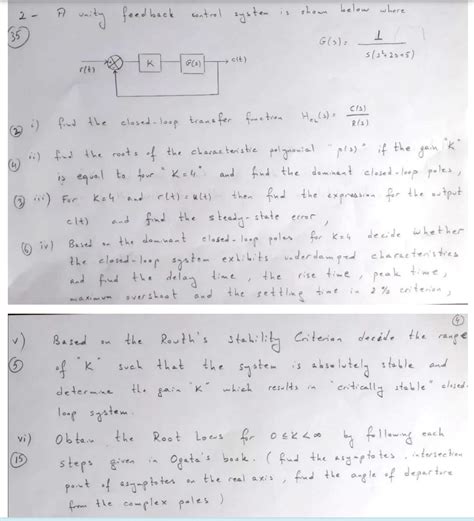 2 - A unity feedback control system is shown below where
35
G(s) = 1 / s(s²+2s+5)
r(t) K G(s) c(t)
2 i) find the closed-loop transfer function H_CL(s) = C(s) / R(s)
4 ii) find the roots of the characteristic polynomial "p(s)" if the gain "K"
is equal to four "K=4" and find the dominant closed-loop poles,
3 iii) For K=4 and r(t) = u(t) then find the expression for the output
c(t) and find the steady-state error,
6 iv) Based on the dominant closed-loop poles for K=4 decide whether
the closed-loop system exhibits underdamped characteristics
and find the delay time, the rise time, peak time,
maximum overshoot and the settling time in 2% criterion,
4
v) Based on the Routh's Stability Criterion decide the range
5 of "K" such that the system is absolutely stable and
determine the gain "K" which results in "critically stable" closed-
loop system.
vi) Obtain the Root Locus for 0≤K<∞ by following each
15 steps given in Ogata's book. (find the asymptotes, intersection
point of asymptotes on the real axis, find the angle of departure
from the complex poles)